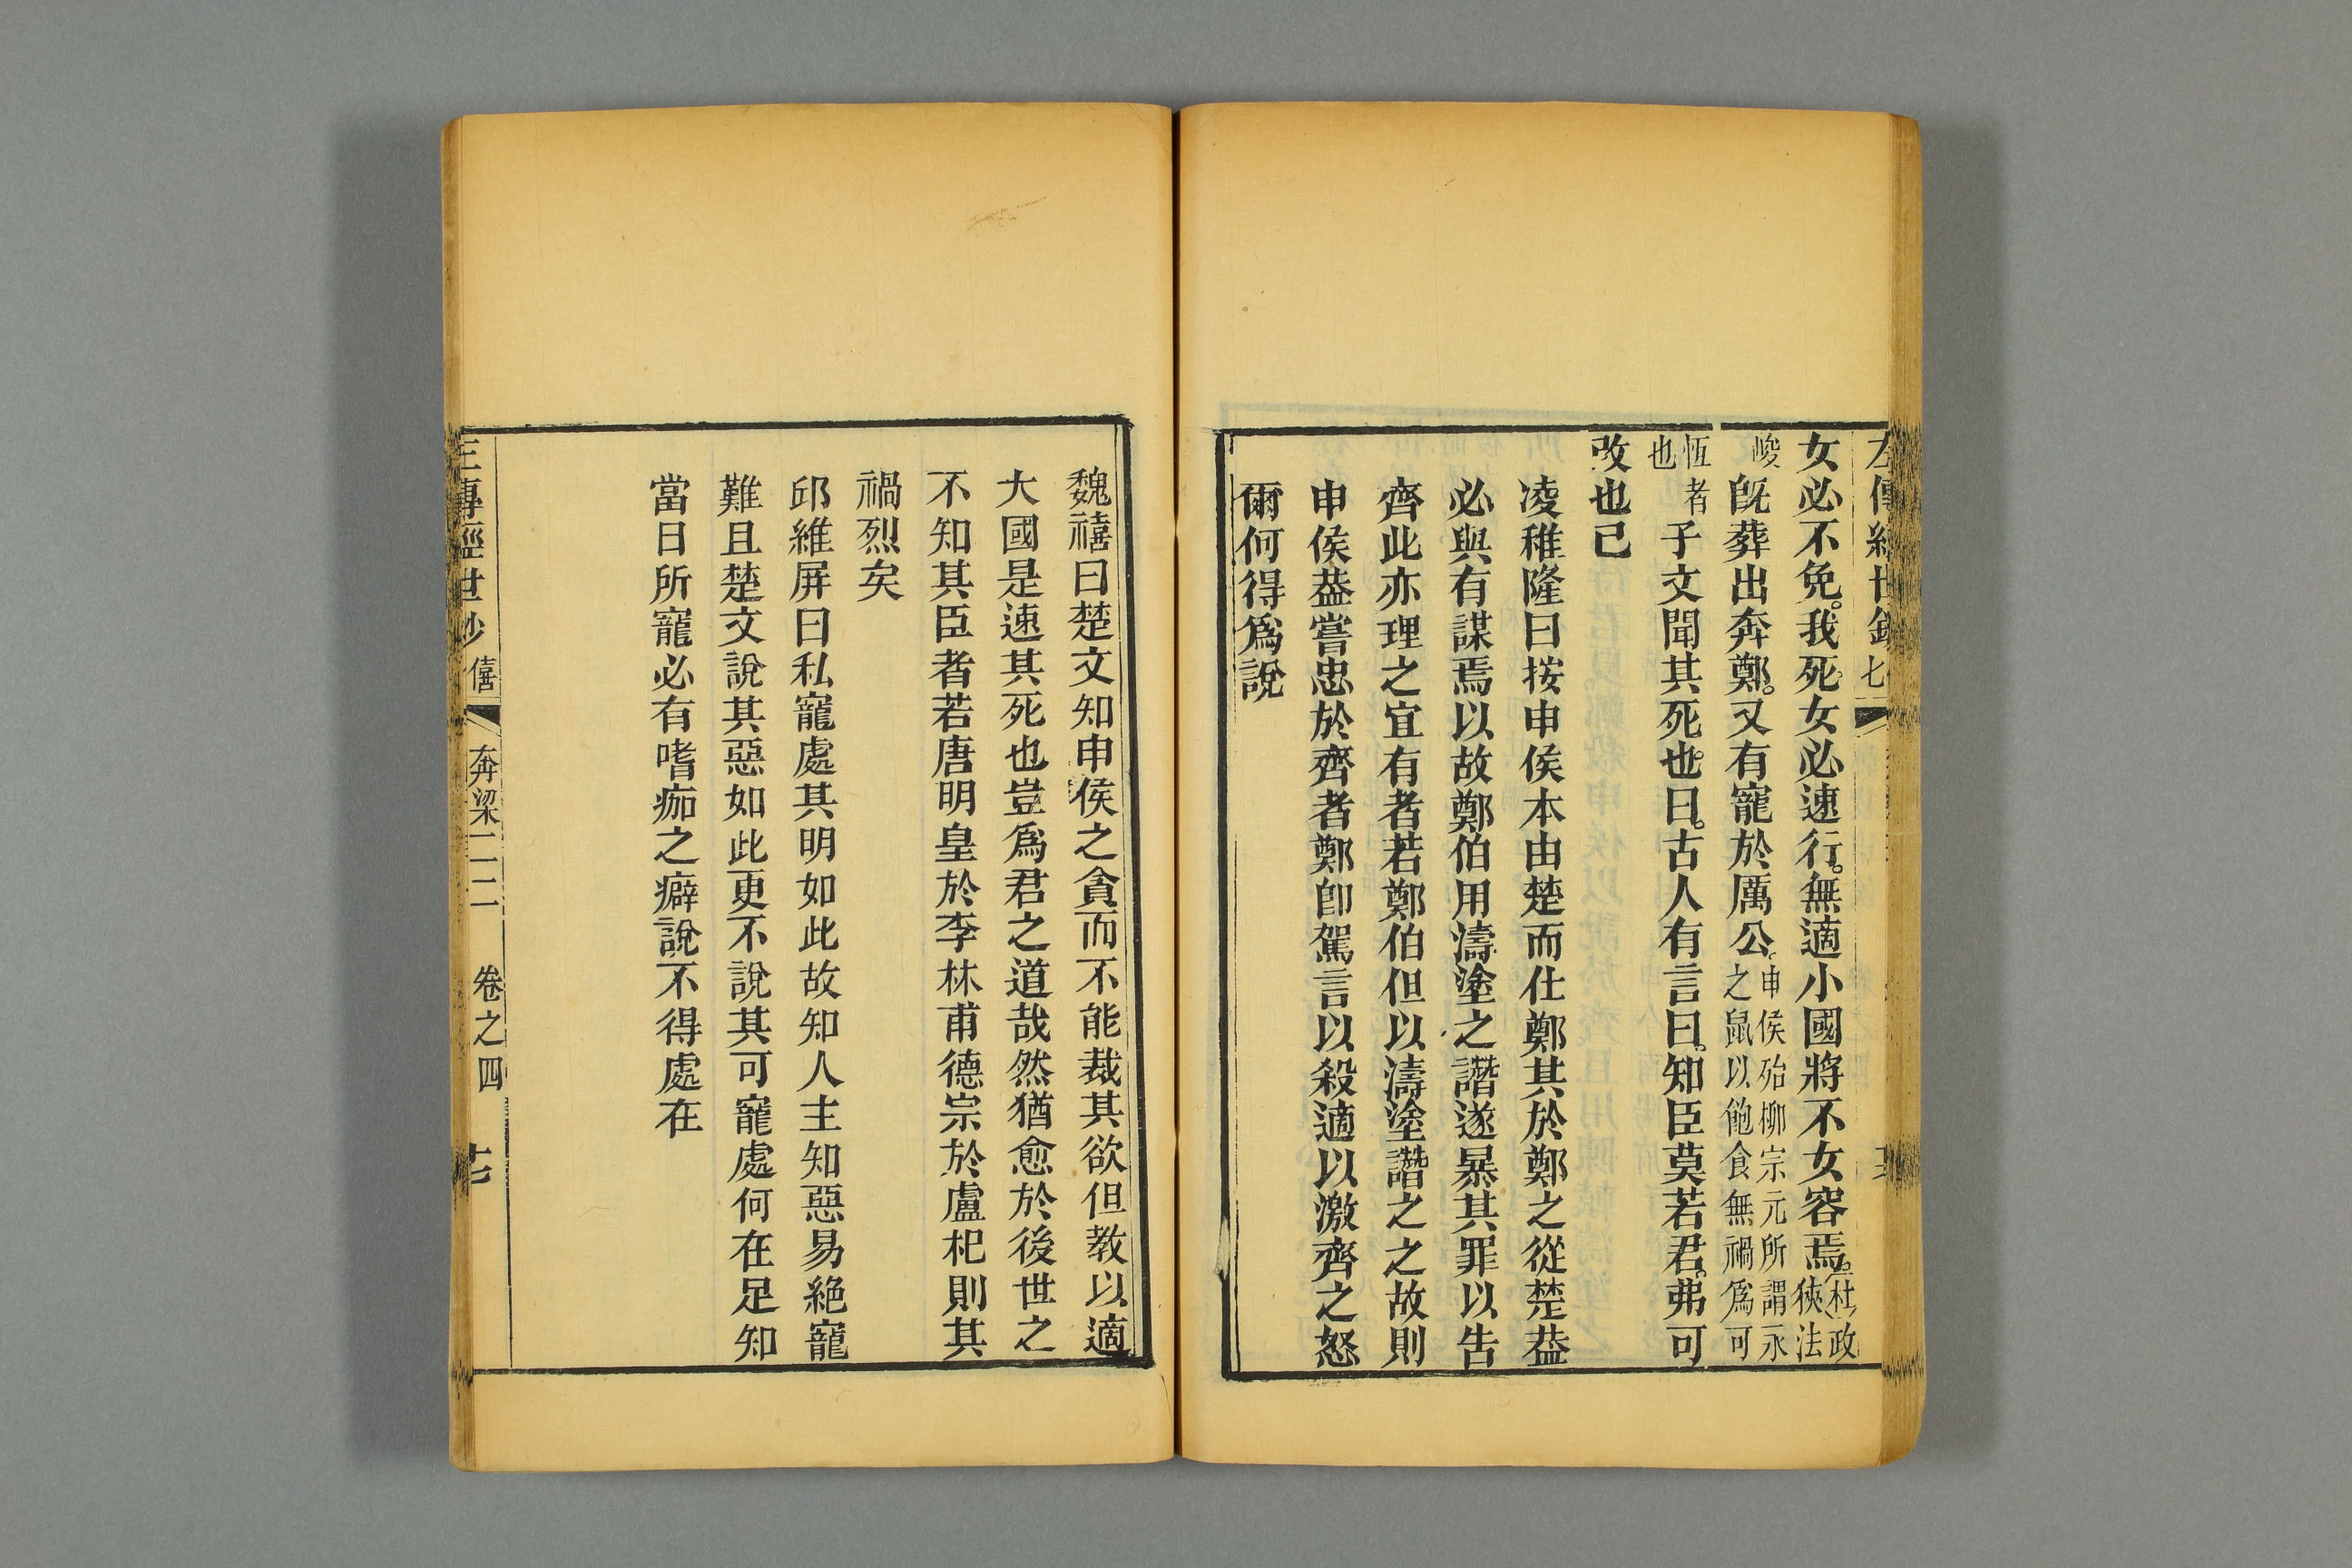 左傳經世鈔 七
女必不免我死女必速行無適小國將不女容焉杜政狹法
峻既葬出奔鄭又有寵於厲公申侯殆柳宗元所謂永之鼠以飽食無禍爲可
恆者也子文聞其死也曰古人有言曰知臣莫若君弗可
改也已
凌稚隆曰按申侯本由楚而仕鄭其於鄭之從楚葢
必與有謀焉以故鄭伯用濤塗之譖遂暴其罪以告
齊此亦理之宜有者若鄭伯但以濤塗譖之之故則
申侯葢嘗忠於齊者鄭卽駕言以殺適以激齊之怒
爾何得爲說
魏禧曰楚文知申侯之貪而不能裁其欲但教以適
大國是速其死也豈爲君之道哉然猶愈於後世之
不知其臣者若唐明皇於李林甫德宗於盧杞則其
禍烈矣
邱維屏曰私寵處其明如此故知人主知惡易絶寵
難且楚文說其惡如此更不說其可寵處何在足知
當日所寵必有嗜痂之癖說不得處在
左傳經世鈔 僖 奔梁 卷之四 十七